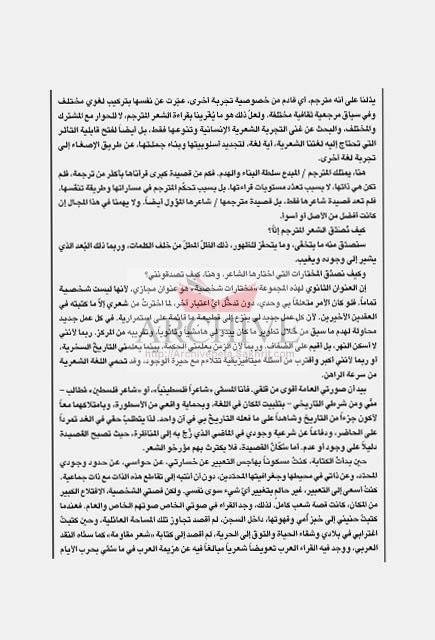 يدلنا على أنه مترجم، أي قادم من خصوصية تجربة أخرى، عبّرت عن نفسها بتركيب لغوي مختلف
وفي سياق مرجعية ثقافية مختلفة. ولعلّ ذلك هو ما يُغرينا بقراءة الشعر المترجم، لا للحوار مع المشترك
والمختلف، والبحث عن غنى التجربة الشعرية الإنسانية وتنوعها فقط، بل أيضاً لفتح قابلية التأثر
التي تحتاج إليه لغتنا الشعرية، أية لغة، لتجديد أسلوبيتها وبناء جملتها، عن طريق الإصغاء إلى
تجربة لغة أخرى.
هنا، يمتلك المترجم / المبدع سلطة البناء والهدم. فكم من قصيدة كبرى قرأناها بأكثر من ترجمة، فلم
تكن هي ذاتها، لا بسبب تعدّد مستويات قراءتها، بل بسبب تحكّم المترجم في مساراتها وطريقة تنفّسها.
فلم تعد قصيدة شاعرها فقط، بل قصيدة مترجمها / شاعرها المؤول أيضاً. ولا يهمنا في هذا المجال إن
كانت أفضل من الأصل أو أسوأ.
كيف نُصدّق الشعر المترجم إذاً؟
سنصدّق منه ما يتخفّى، وما يتحفّز للظهور، ذلك الظلّ المطلّ من خلف الكلمات، وربما ذلك البُعد الذي
يشير إلى وجوده ويغيب.
وكيف نصدّق المختارات التي اختارها الشاعر، وهنا، كيف تصدقونني؟
إن العنوان الثانوي لهذه المجموعة «مختارات شخصية» هو عنوان مجازي، لأنها ليست شخصية
تماماً. فلو كان الأمر متعلقاً بي وحدي، دون تدخّل أيّ اعتبار آخر، لما اخترتُ من شعري إلاّ ما كتبته في
العقدين الأخيرين. لأن كل عمل جديد لي ينزع إلى قطيعة ما قائمة على استمرارية. في كل عمل جديد
محاولة لهدم ما سبق من خلال تطوير ما كان يبدو لي هامشياً وثانوياً، وتقريبه من المركز. ربما لأنني
لا أسكن النهر، بل أقيم على الضفاف. وربما لأن الزمن يعلّمني الحكمة، بينما يعلّمني التاريخ السخرية،
أو ربما لأنني أكبر وأقترب من أسئلة ميتافيزيقية تتلاءم مع حيرة الوجود، وقد تحمي اللغة الشعرية
من سرعة الراهن.
بيد أن صورتي العامة أقوى من قلقي. فأنا المسمّى «شاعراً فلسطينياً»، أو «شاعر فلسطين» تُطالب –
منّي ومن شرطي التاريخي – بتثبيت المكان في اللغة، وبحماية واقعي من الأسطورة، وبامتلاكهما معاً
لأكون جزءاً من التاريخ وشاهداً على ما فعله التاريخ بي في آن واحد. لذا يتطلّب حقي في الغد تمرداً
على الحاضر، ودفاعاً عن شرعية وجودي في الماضي الذي زُجّ به إلى المناظرة، حيث تصبح القصيدة
دليلاً على وجود أو عدم. أما سكّان القصيدة، فلا يكترث بهم مؤرخو الشعر.
حين بدأت الكتابة، كنتُ مسكوناً بهاجس التعبير عن خسارتي، عن حواسي، عن حدود وجودي
المحدّد، وعن ذاتي في محيطها وجغرافيتها المحددين، دون أن أنتبه إلى تقاطع هذه الذات مع ذات جماعية.
كنتُ أسعى إلى التعبير، غير حالم بتغيير أيّ شيء سوى نفسي. ولكن قصتي الشخصية، الاقتلاع الكبير
من المكان، كانت قصة شعب كامل. لذلك، وجد القراء في صوتي الخاص صوتهم الخاص والعام. فعندما
كتبتُ حنيني إلى خبز أمي وقهوتها، داخل السجن، لم أقصد تجاوز تلك المساحة العائلية. وحين كتبتُ
اغترابي في بلادي وشقاء الحياة والتوق إلى الحرية، لم أقصد إلى كتابة «شعر مقاومة» كما سماه النقد
العربي، ووجد فيه القراء العرب تعويضاً شعرياً مبالغاً فيه عن هزيمة العرب في ما سُمّي بحرب الأيام
ARCHIVE
http://Archivebeta.Sakhrit.com